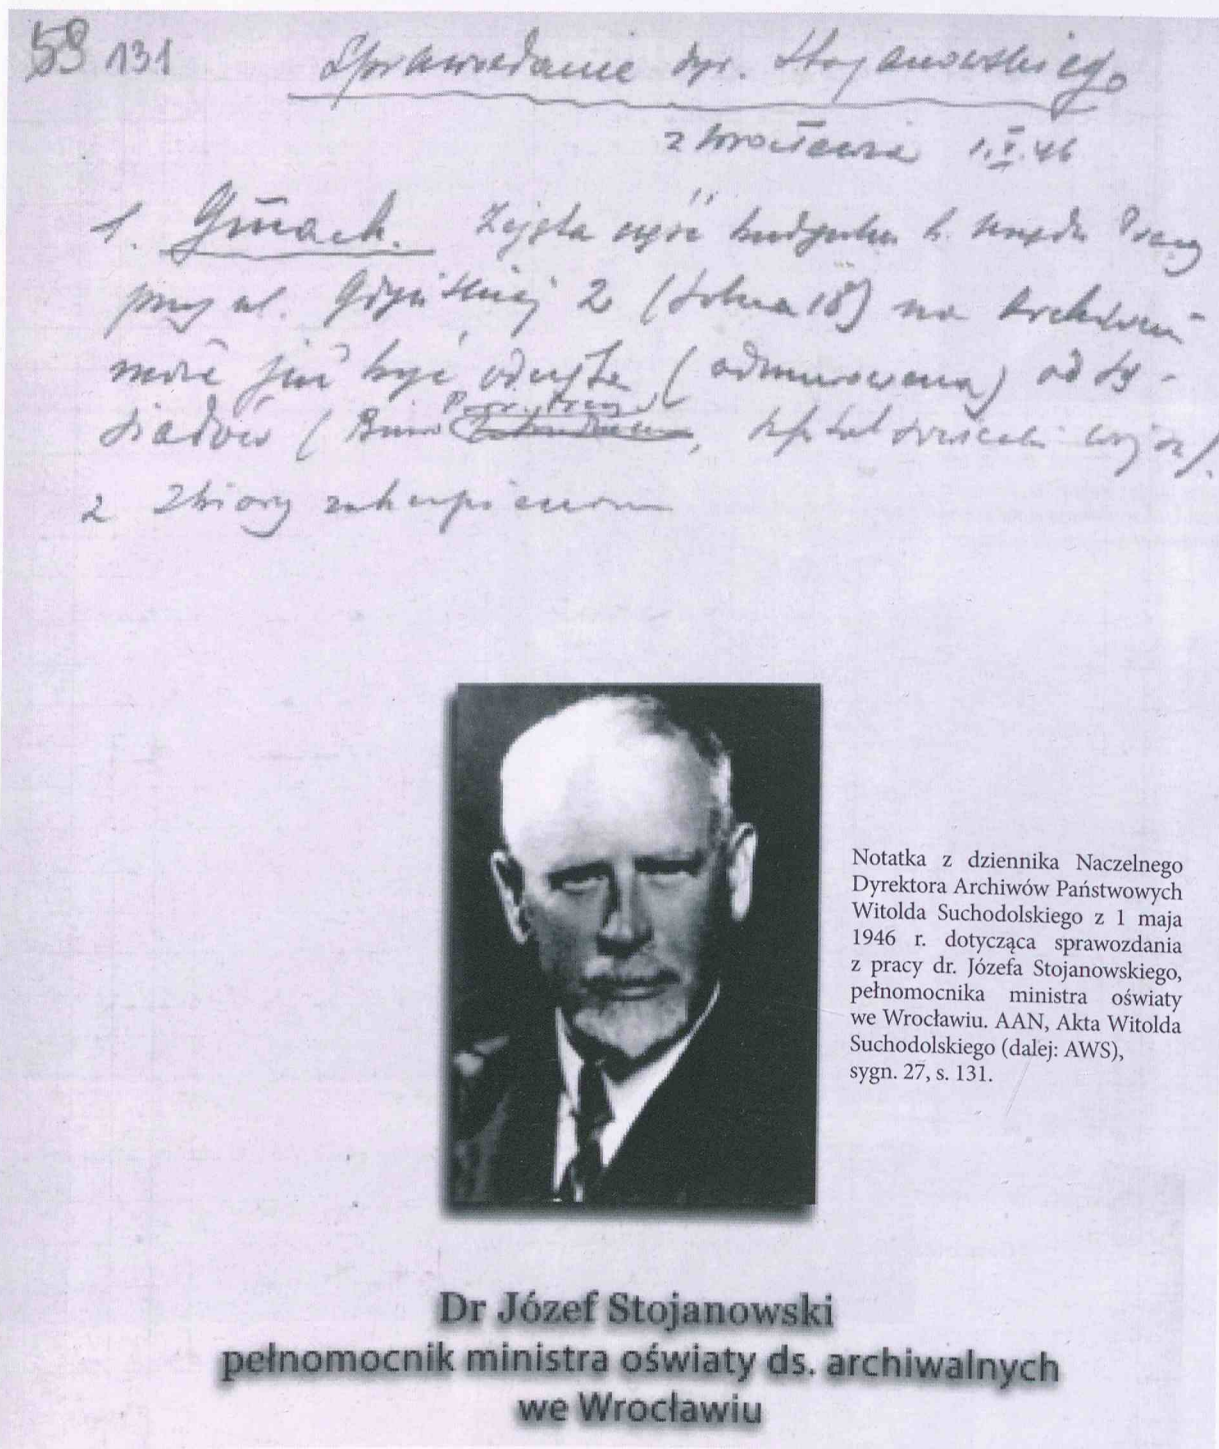 59 131
Sprawozdanie dyr. Stojanowskiego
z Wrocławia 1.V.46
1. Gmach. Zajęta część budynku b. Urzędu Pracy
przy ul. Gdyńskiej 2 ( 18) na Archiwum
może już być odcięta (odmurowana) od są-
siadów (Biuro Pracy, szpital wojsk).
2 Zbiory
Notatka z dziennika Naczelnego
Dyrektora Archiwów Państwowych
Witolda Suchodolskiego z 1 maja
1946 r. dotycząca sprawozdania
z pracy dr. Józefa Stojanowskiego,
pełnomocnika ministra oświaty
we Wrocławiu. AAN, Akta Witolda
Suchodolskiego (dalej: AWS),
sygn. 27, s. 131.
Dr Józef Stojanowski
pełnomocnik ministra oświaty ds. archiwalnych
we Wrocławiu